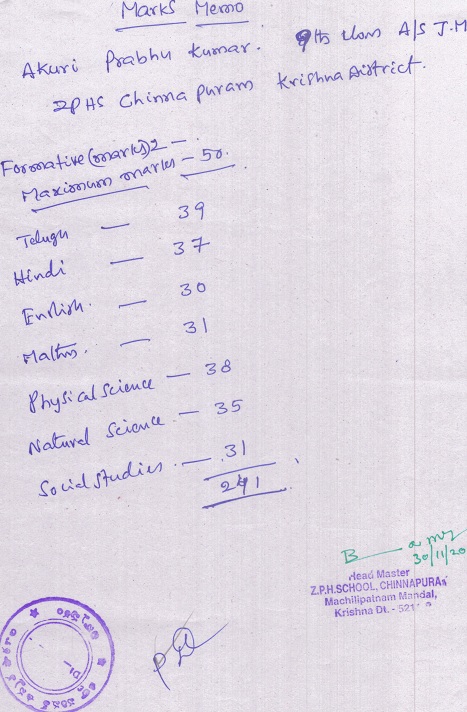 Marks Memo
Akuri Prabhu Kumar. 9th class A/S J.M
ZPHS Chinnapuram Krishna District.
Formative (marks) 2 —
Maximum marks — 50.
Telugu — 39
Hindi — 37
English. — 30
Maths. — 31
Physical Science — 38
Natural Science — 35
Social Studies. — 31
241
30/11/20
Head Master
Z.P.H.SCHOOL, CHINNAPURAM
Machilipatnam Mandal,
Krishna Dt. - 521